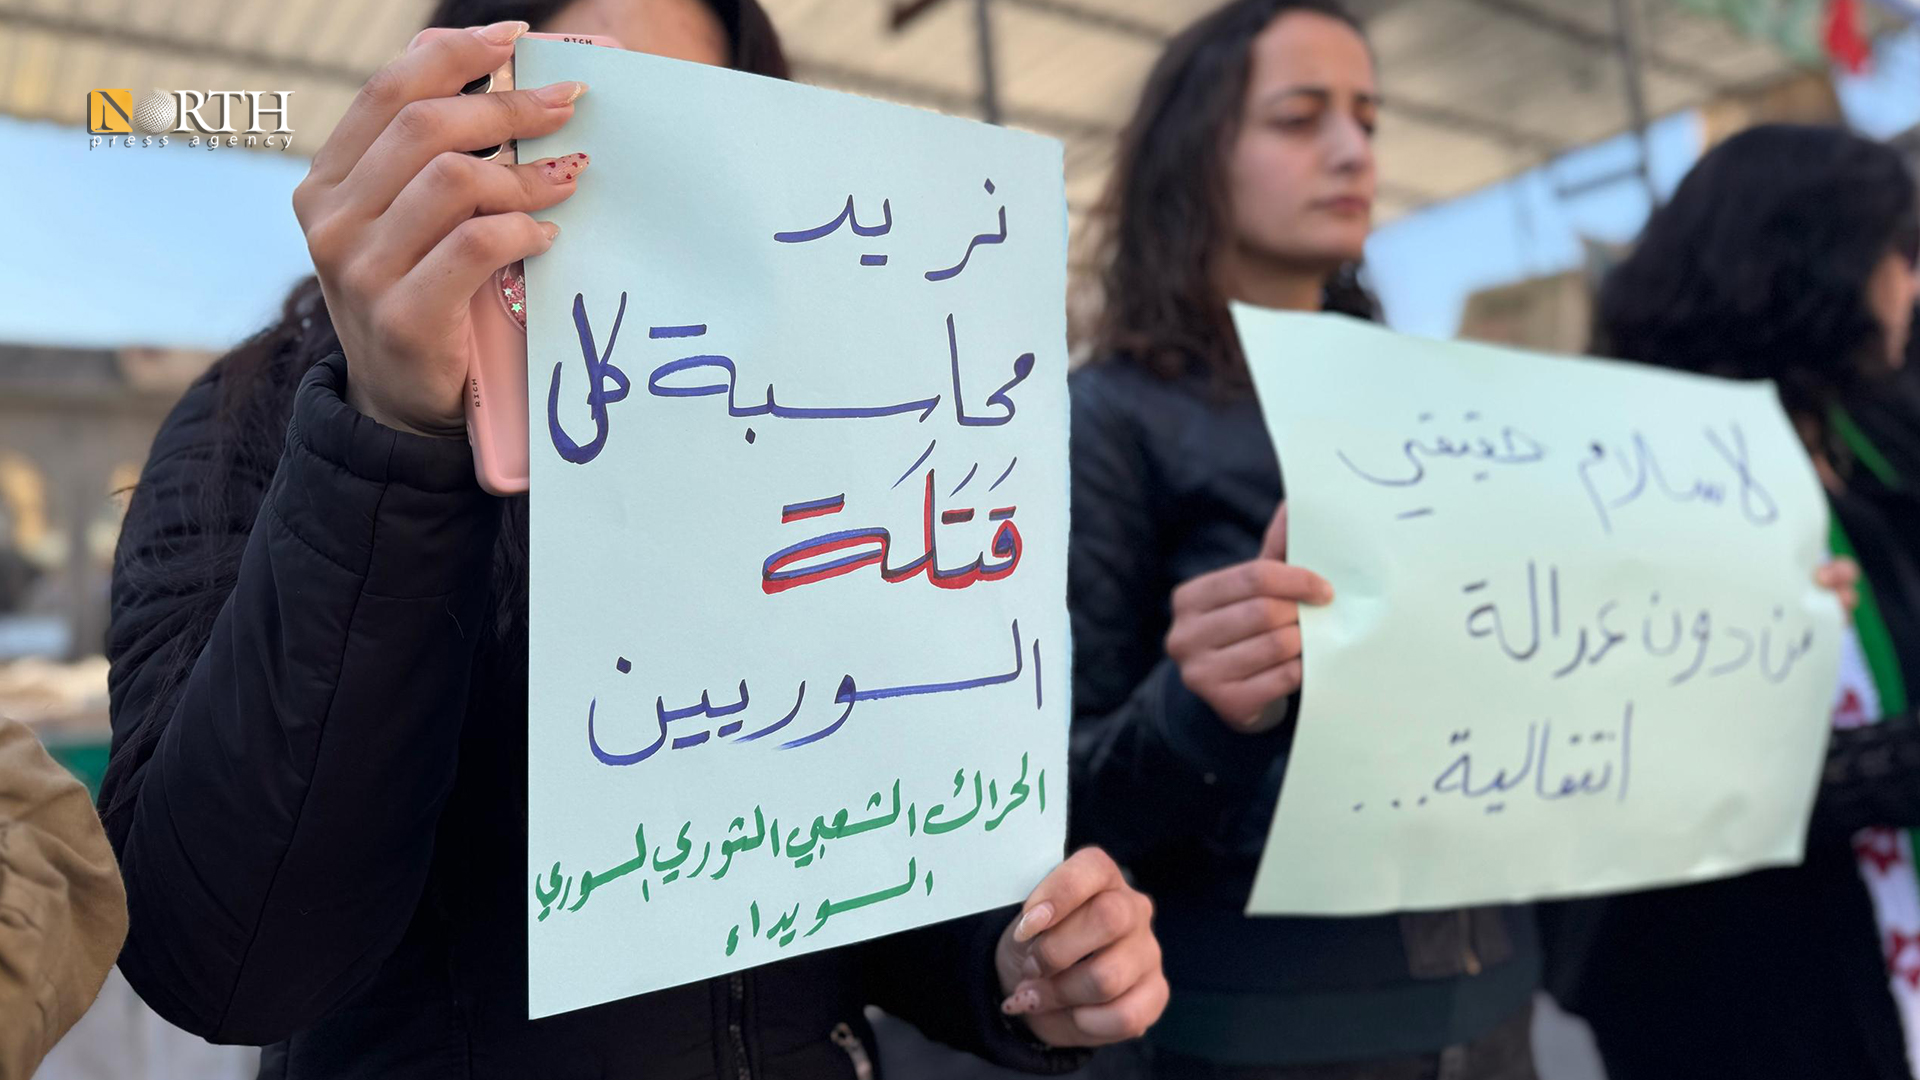 NORTH
press agency
RICH
RICH
نريد
محاسبة كل
قَتَلَة
السوريين
الحراك الشعبي الثوري السوري
السويداء
لا سلام حقيقي
من دون عدالة
انتقالية...